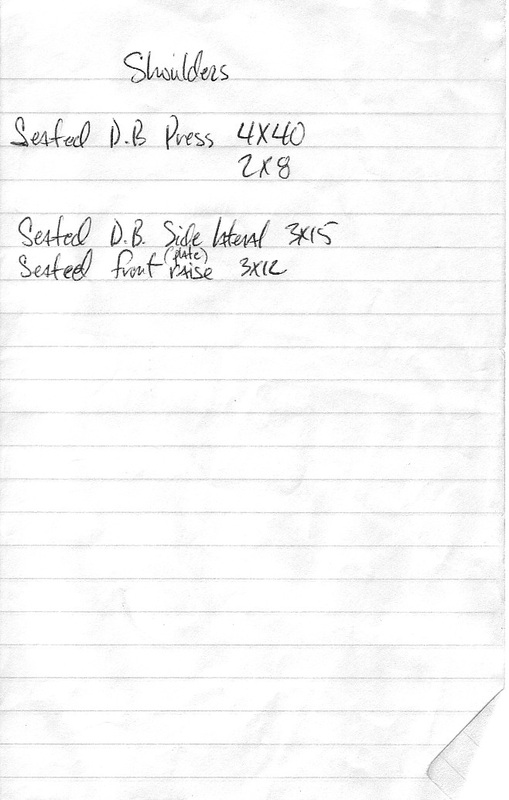 Shoulders
Seated D.B Press 4X40
2X8
Seated D.B. Side lateral 3X15
Seated front (plate) raise 3X12